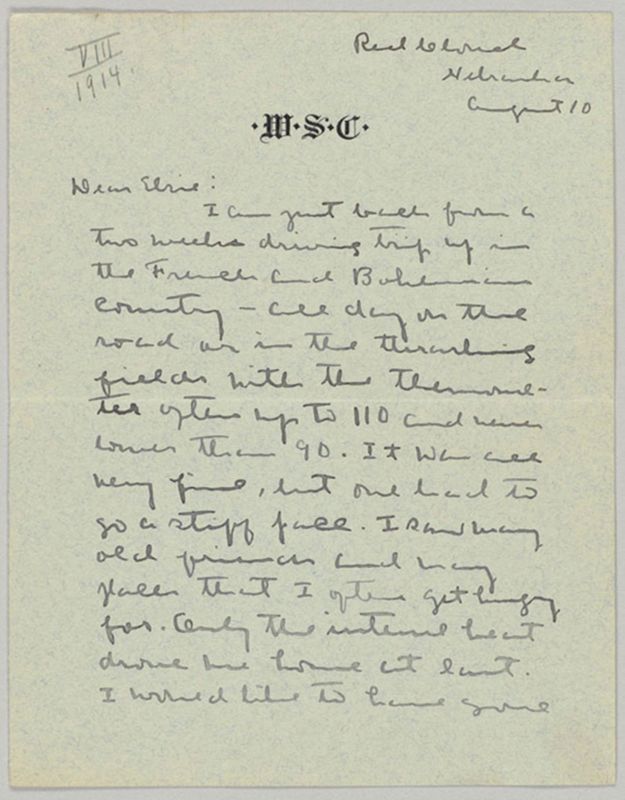 VIII
1914.
Red Cloud
Nebraska
August 10
·W·S·C·
Dear Elsie:
I am just back from a
two weeks driving trip up in
the French and Bohemian
country – all day on the
road or in the thrashing
fields with the thermome-
ter often up to 110 and never
lower than 90. It was all
very fine, but one had to
go a stiff pace. I saw many
old friends and many
places that I often get hungry
for. Only the intense heat
drove me home at last.
I would like to have gone